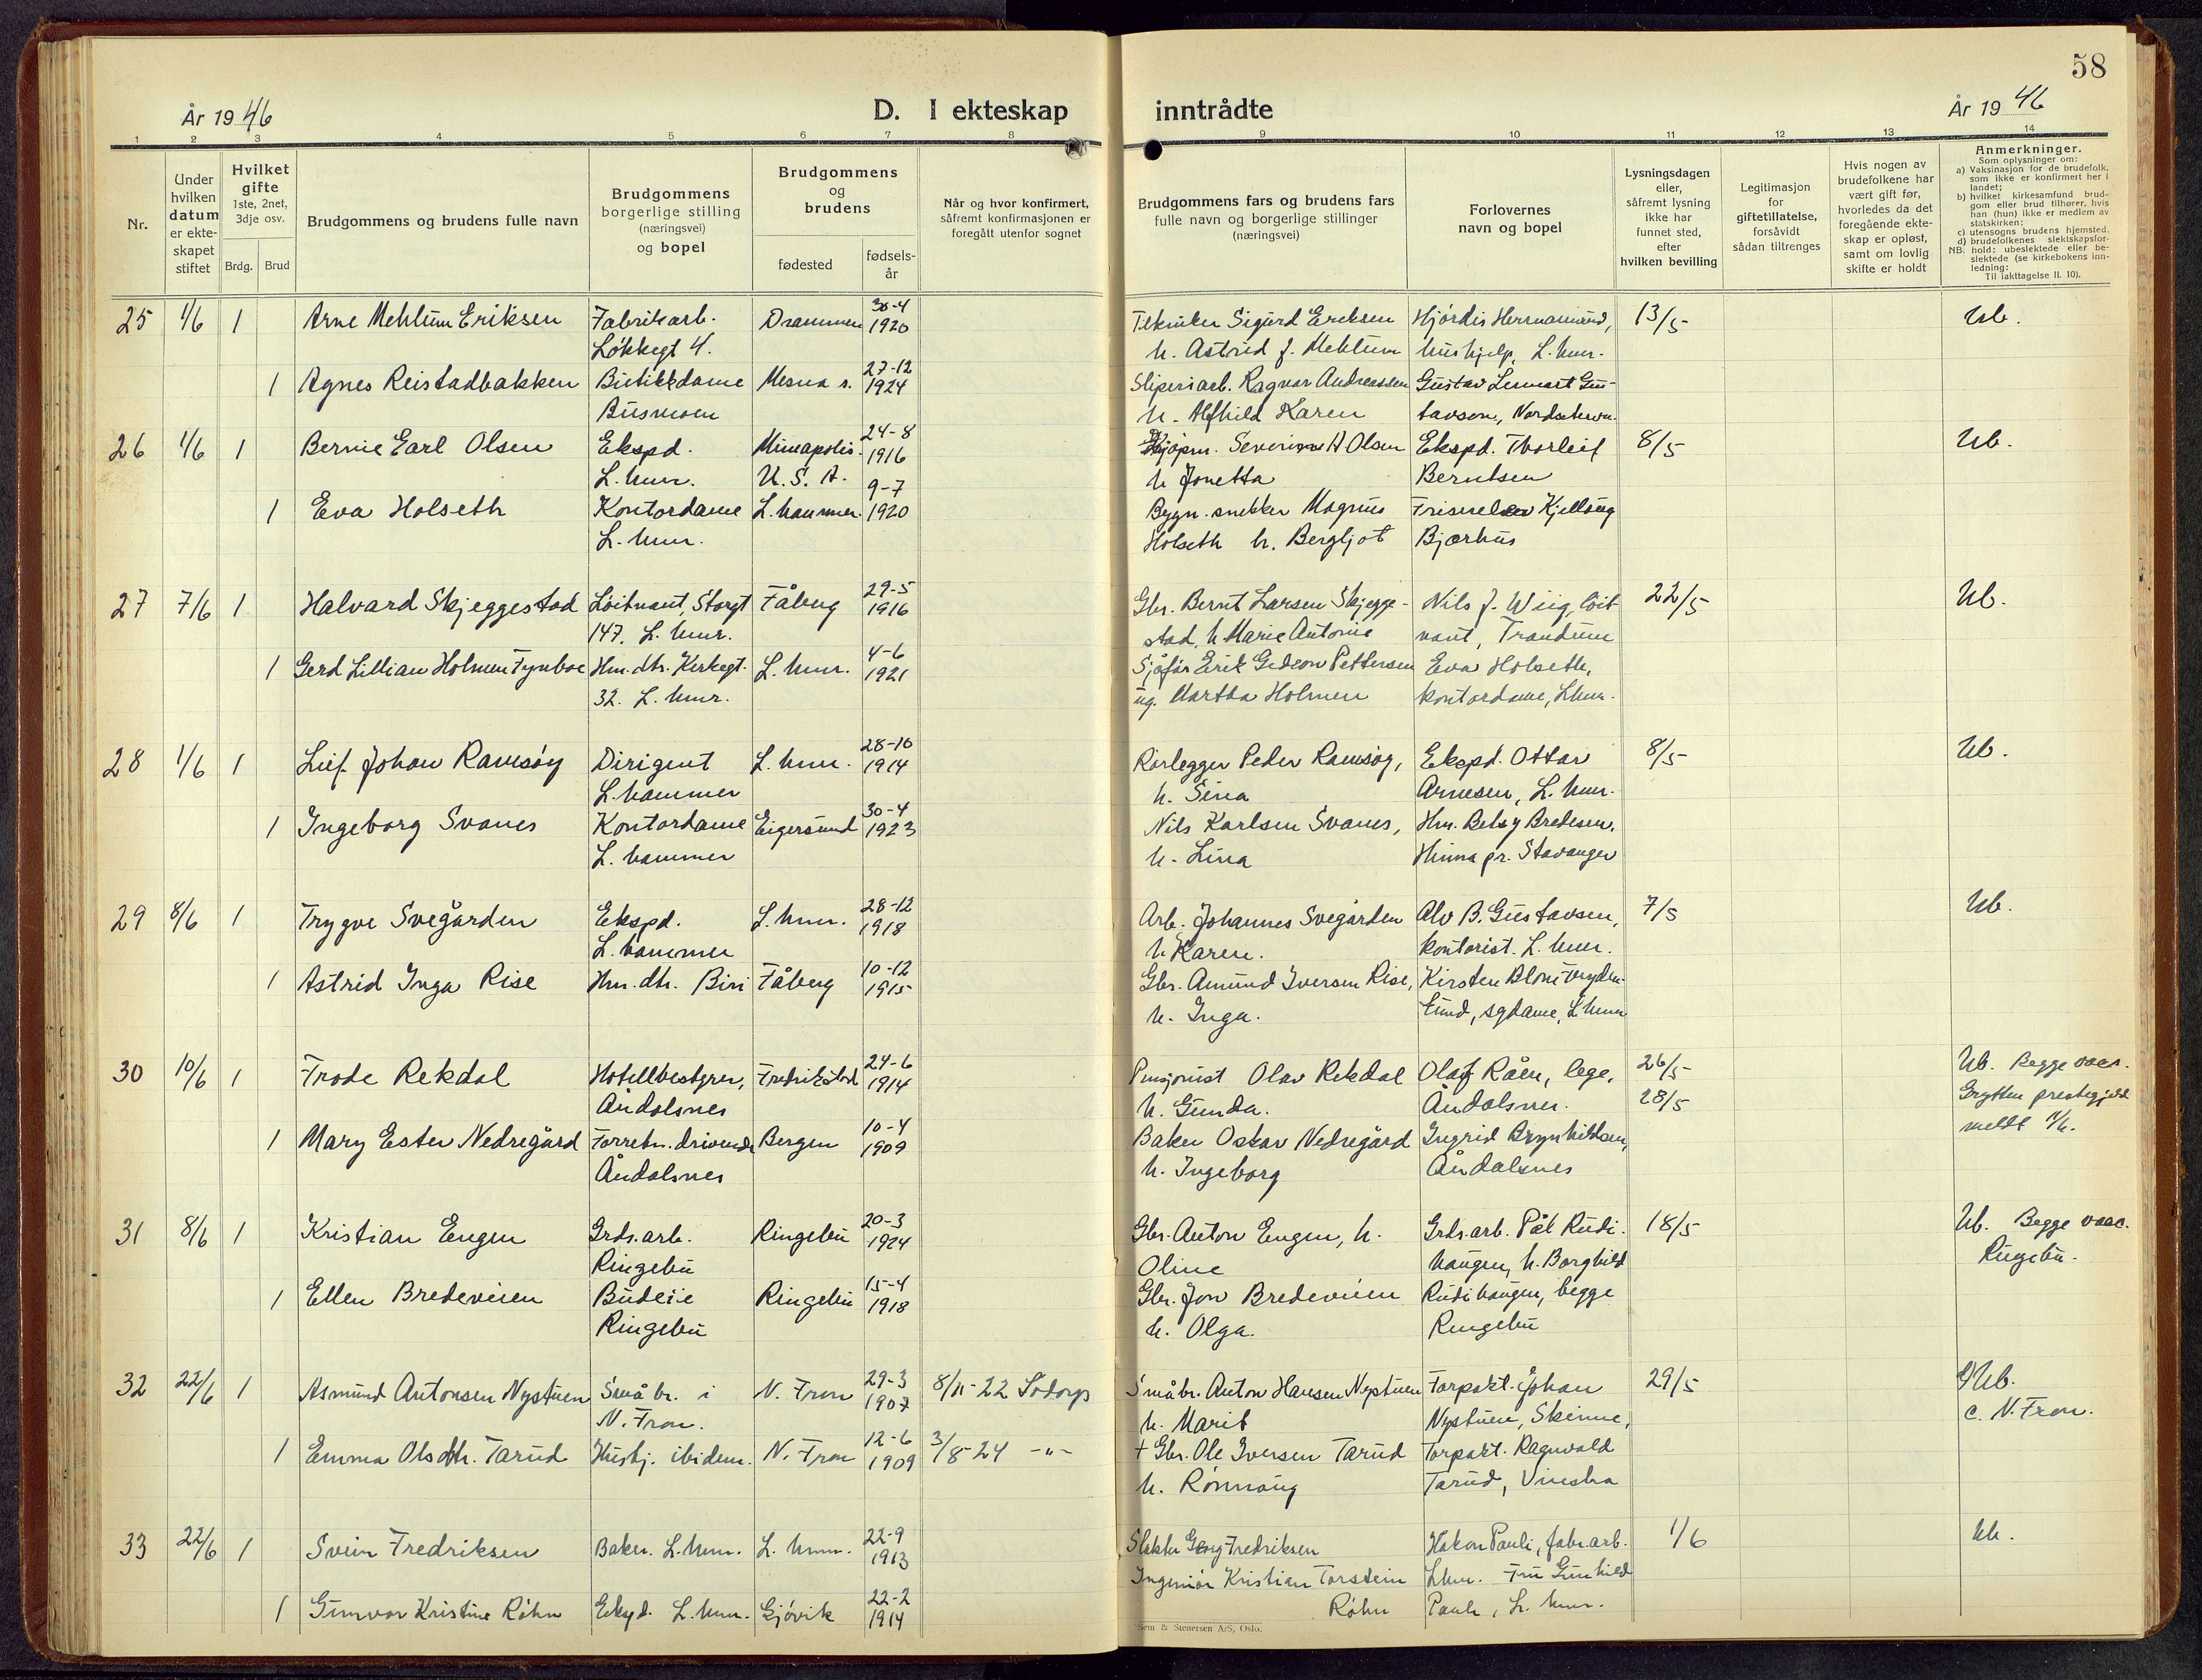 58
År 1946
D. I ekteskap inntrådte
År 1946
1 2 3 4 5 6 7 8 9 10 11 12 13 14
Nr.
Under hvilken datum er ekteskapet stiftet
Hvilket gifte 1ste, 2net, 3dje osv.
Brdg. Brud
Brudgommens og brudens fulle navn
Brudgommens borgerlige stilling (næringsvei) og bopel
Brudgommens og brudens
fødested
fødselsår
Når og hvor konfirmert, såfremt konfirmasjonen er foregått utenfor sognet
Brudgommens fars og brudens fars fulle navn og borgerlige stillinger (næringsvei)
Forlovernes navn og bopel
Lysningsdagen eller, såfremt lysning ikke har funnet sted, efter hvilken bevilling
Legitimasjon for giftetillatelse, forsåvidt sådan tiltrenges
Hvis nogen av brudefolkene har vært gift før, hvorledes da det foregående ekteskap er opløst, samt om lovlig skifte er holdt
Anmerkninger.
Som oplysninger om:
a) Vaksinasjon for de brudefolk, som ikke er konfirmert her i landet;
b) hvilket kirkesamfund brudgom eller brud tilhører, hvis han (hun) ikke er medlem av statskirken;
c) utensogns brudens hjemsted.
d) brudefolkenes slektskapsforhold: ubeslektede eller beslektede (se kirkebokens innledning:
NB. Til iakttagelse II. 10).
25 1/6 1 Arne Mehlum Eriksen Fabrikarb. Drammen 30-4 1920 Tekniker Sigurd Eriksen Hjørdis Herrnamund, 13/5 Ub.
Løkkegt 4. h. Astrid f. Mehlum hushjelp, L.hmr.
1 Agnes Reistadbakken Butikkdame Mesna s. 27-12 1924 Sliperiarb. Ragnar Andreassen Gustav Lennart Gus-
Busmoen h. Alfhild Karen tavson, Nordseterv.
26 1/6 1 Bernie Earl Olsen Ekspd. Mineapolis 24-8 1916 Kjøpm. Severin A Olsen Ekspd. Thorleif 8/5 Ub.
L.hmr. U.S.A. h Jonetta Berntsen
1 Eva Holseth Kontordame L.hammer 9-7 1920 Bygn.snekker Magnus Kjellaug
L.hmr. Holseth h. Bergljot Bjærhus
27 7/6 1 Halvard Skjeggestad Løitnant, Storgt Fåberg 29-5 1916 Gbr. Bernt Larsen Skjegge- Nils J. Wiig, løit- 22/5 Ub.
147. L.hmr. stad, h. Marie Antonie nant, Trandum
1 Gerd Lillian Holmen Tynboe Hm.dtr. Kirkegt. L.hmr. 4-6 1921 Sjøfår Erik Gedeon Pettersen Eva Holseth,
32. L.hmr. ug. Martha Holmen kontordame, Lhmr.
28 1/6 1 Leif Johan Ramsøy Dirigent L.hmr. 28-10 1914 Rørlegger Peder Ramsøy, Ekspd. Ottar 8/5 Ub.
L.hammer h. Sina Arnesen, L.hmr.
1 Ingeborg Svanes Kontordame Eigersund 30-4 1923 Nils Karlsen Svanes, Hm. Betsy Bredesen,
L.hammer h. Lina Hinna pr. Stavanger
29 8/6 1 Trygve Svegården Ekspd. L.hmr. 28-12 1918 Arb. Johannes Svegården Alv B. Gustavsen, 7/5 Ub.
L.hammer h. Karen. kontorist. L.hmr.
1 Astrid Inga Rise Hm.dtr. Biri Fåberg 10-12 1915 Gbr. Amund Iversen Rise, Kirsten
h. Inga. lund, sydame, L.hmr
30 10/6 1 Frode Rekdal Hotellbestyrer, Fredrikstad 24-6 1914 Pensjonist Olav Rekdal Olaf Råen, lege, 26/5 Ub. Begge vacs.
Åndalsnes h. Gunda. Åndalsnes. 28/5 Grytten prestegjeld
1 Mary Ester Nedregård Forretn.drivende Bergen 10-4 1909 Baker Oskar Nedregård Ingrid Brynhildsen, meldt 11/6.
Åndalsnes h. Ingeborg Åndalsnes
31 8/6 1 Kristian Engen Grds.arb. Ringebu 20-3 1924 Gbr. Anton Engen, h. Grds.arb. Pål Rudi- 18/5 Ub. Begge vacc.
Ringebu Oline haugen, h. Borghild Ringebu.
1 Ellen Bredeveien Budeie Ringebu 15-4 1918 Gbr. Jon Bredeveien Rudihaugen, begge
Ringebu h. Olga. Ringebu
32 22/6 1 Asmund Antonsen Nystuen Småbr. i N. Fron 29-3 1907 8/11-22 Sødorp Småbr. Anton Hansen Nystuen Forpakt. Johan 29/5 Ub.
N. Fron. h. Marit Nystuen, Skinne, c. N. Fron.
1 Emma Olsdtr. Tarud Hushj. ibidem. N. Fron 12-6 1909 3/8-24 -"- + Gbr. Ole Iversen Tarud Forpakt. Ragnvald
h. Rønnaug Tarud, Vinstra
33 22/6 1 Svein Fredriksen Baker. L.hmr. L.hmr. 22-9 1913 Slakter Georg Fredriksen Håkon Pauli, fabr.arb. 1/6 Ub.
Ingeniør Kristian Torstein Lhmr. Fru Gunhild
1 Gunvor Kristine Røhn Ekspd. L.hmr. Gjøvik 22-2 1914 Røhn Pauli, L.hmr.
Sem & Stenersen A/S, Oslo.